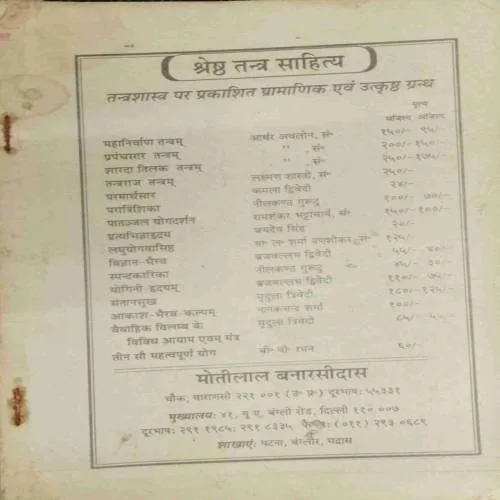 श्रेष्ठ तन्त्र साहित्य
तन्त्रशास्त्र पर प्रकाशित प्रामाणिक एवं उत्कृष्ठ ग्रन्थ
मूल्य
सजिल्द अजिल्द
महानिर्वाण तन्त्रम् आर्थर अवलोन, सं॰ १५०/- ९५/-
प्रपंचसार तन्त्रम् " सं॰ २००/- १५०/-
शारदा तिलक तन्त्रम् " सं॰ २५०/- १७५/-
तन्त्रराज तन्त्रम् लक्ष्मण शास्त्री, सं॰ २५०/-
परमार्थसार कमला द्विवेदी २४/-
परात्रिंशिका नीलकण्ठ गुरुटू १००/- ७०/-
पातञ्जल योगदर्शन रामशंकर भट्टाचार्य, सं॰ १५०/- १००/-
प्रत्यभिज्ञाहृदय जयदेव सिंह २०/-
लघुयोगवासिष्ठ वा॰ ल॰ शर्मा पणशीकर, सं॰ १२५/-
विज्ञान-भैरव ब्रजवल्लभ द्विवेदी ५५/- ४०/-
स्पन्दकारिका नीलकण्ठ गुरुटू ४५/- ३०/-
योगिनी हृदयम् ब्रजवल्लभ द्विवेदी ११०/- ७५/-
संतानसुख मृदुला त्रिवेदी १८०/- १२५/-
आकाश-भैरव-कल्पम् नानकचन्द शर्मा १००/-
वैवाहिक विलम्ब के मृदुला त्रिवेदी ८५/-
विविध आयाम एवम् मंत्र
तीन सौ महत्वपूर्ण योग बी॰ वी॰ रमन ६०/-
मोतीलाल बनारसीदास
चौक, वाराणसी २२१ ००१ (उ॰ प्र॰) दूरभाष: ५५३३१
मुख्यालय: ४१, यू ए, बंग्लो रोड, दिल्ली ११० ००७
दूरभाष: २९१ १९८५, २९१ ८३३५ फैक्स: (०११) २९३ ०६८९
शाखाएं: पटना, बंग्लौर, मद्रास